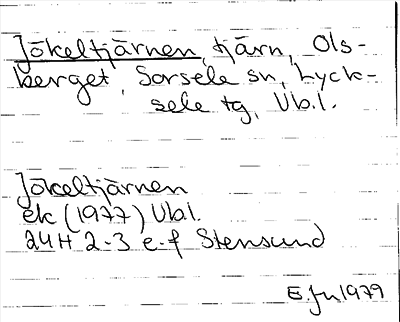 Jökeltjärnen, tjärn, Ols-
berget, Sorsele sn, Lyck-
sele tg, Vb.l.
Jökeltjärnen
ek (1977) Vb.l.
24H 2-3 e-f Stensund
E. 1979